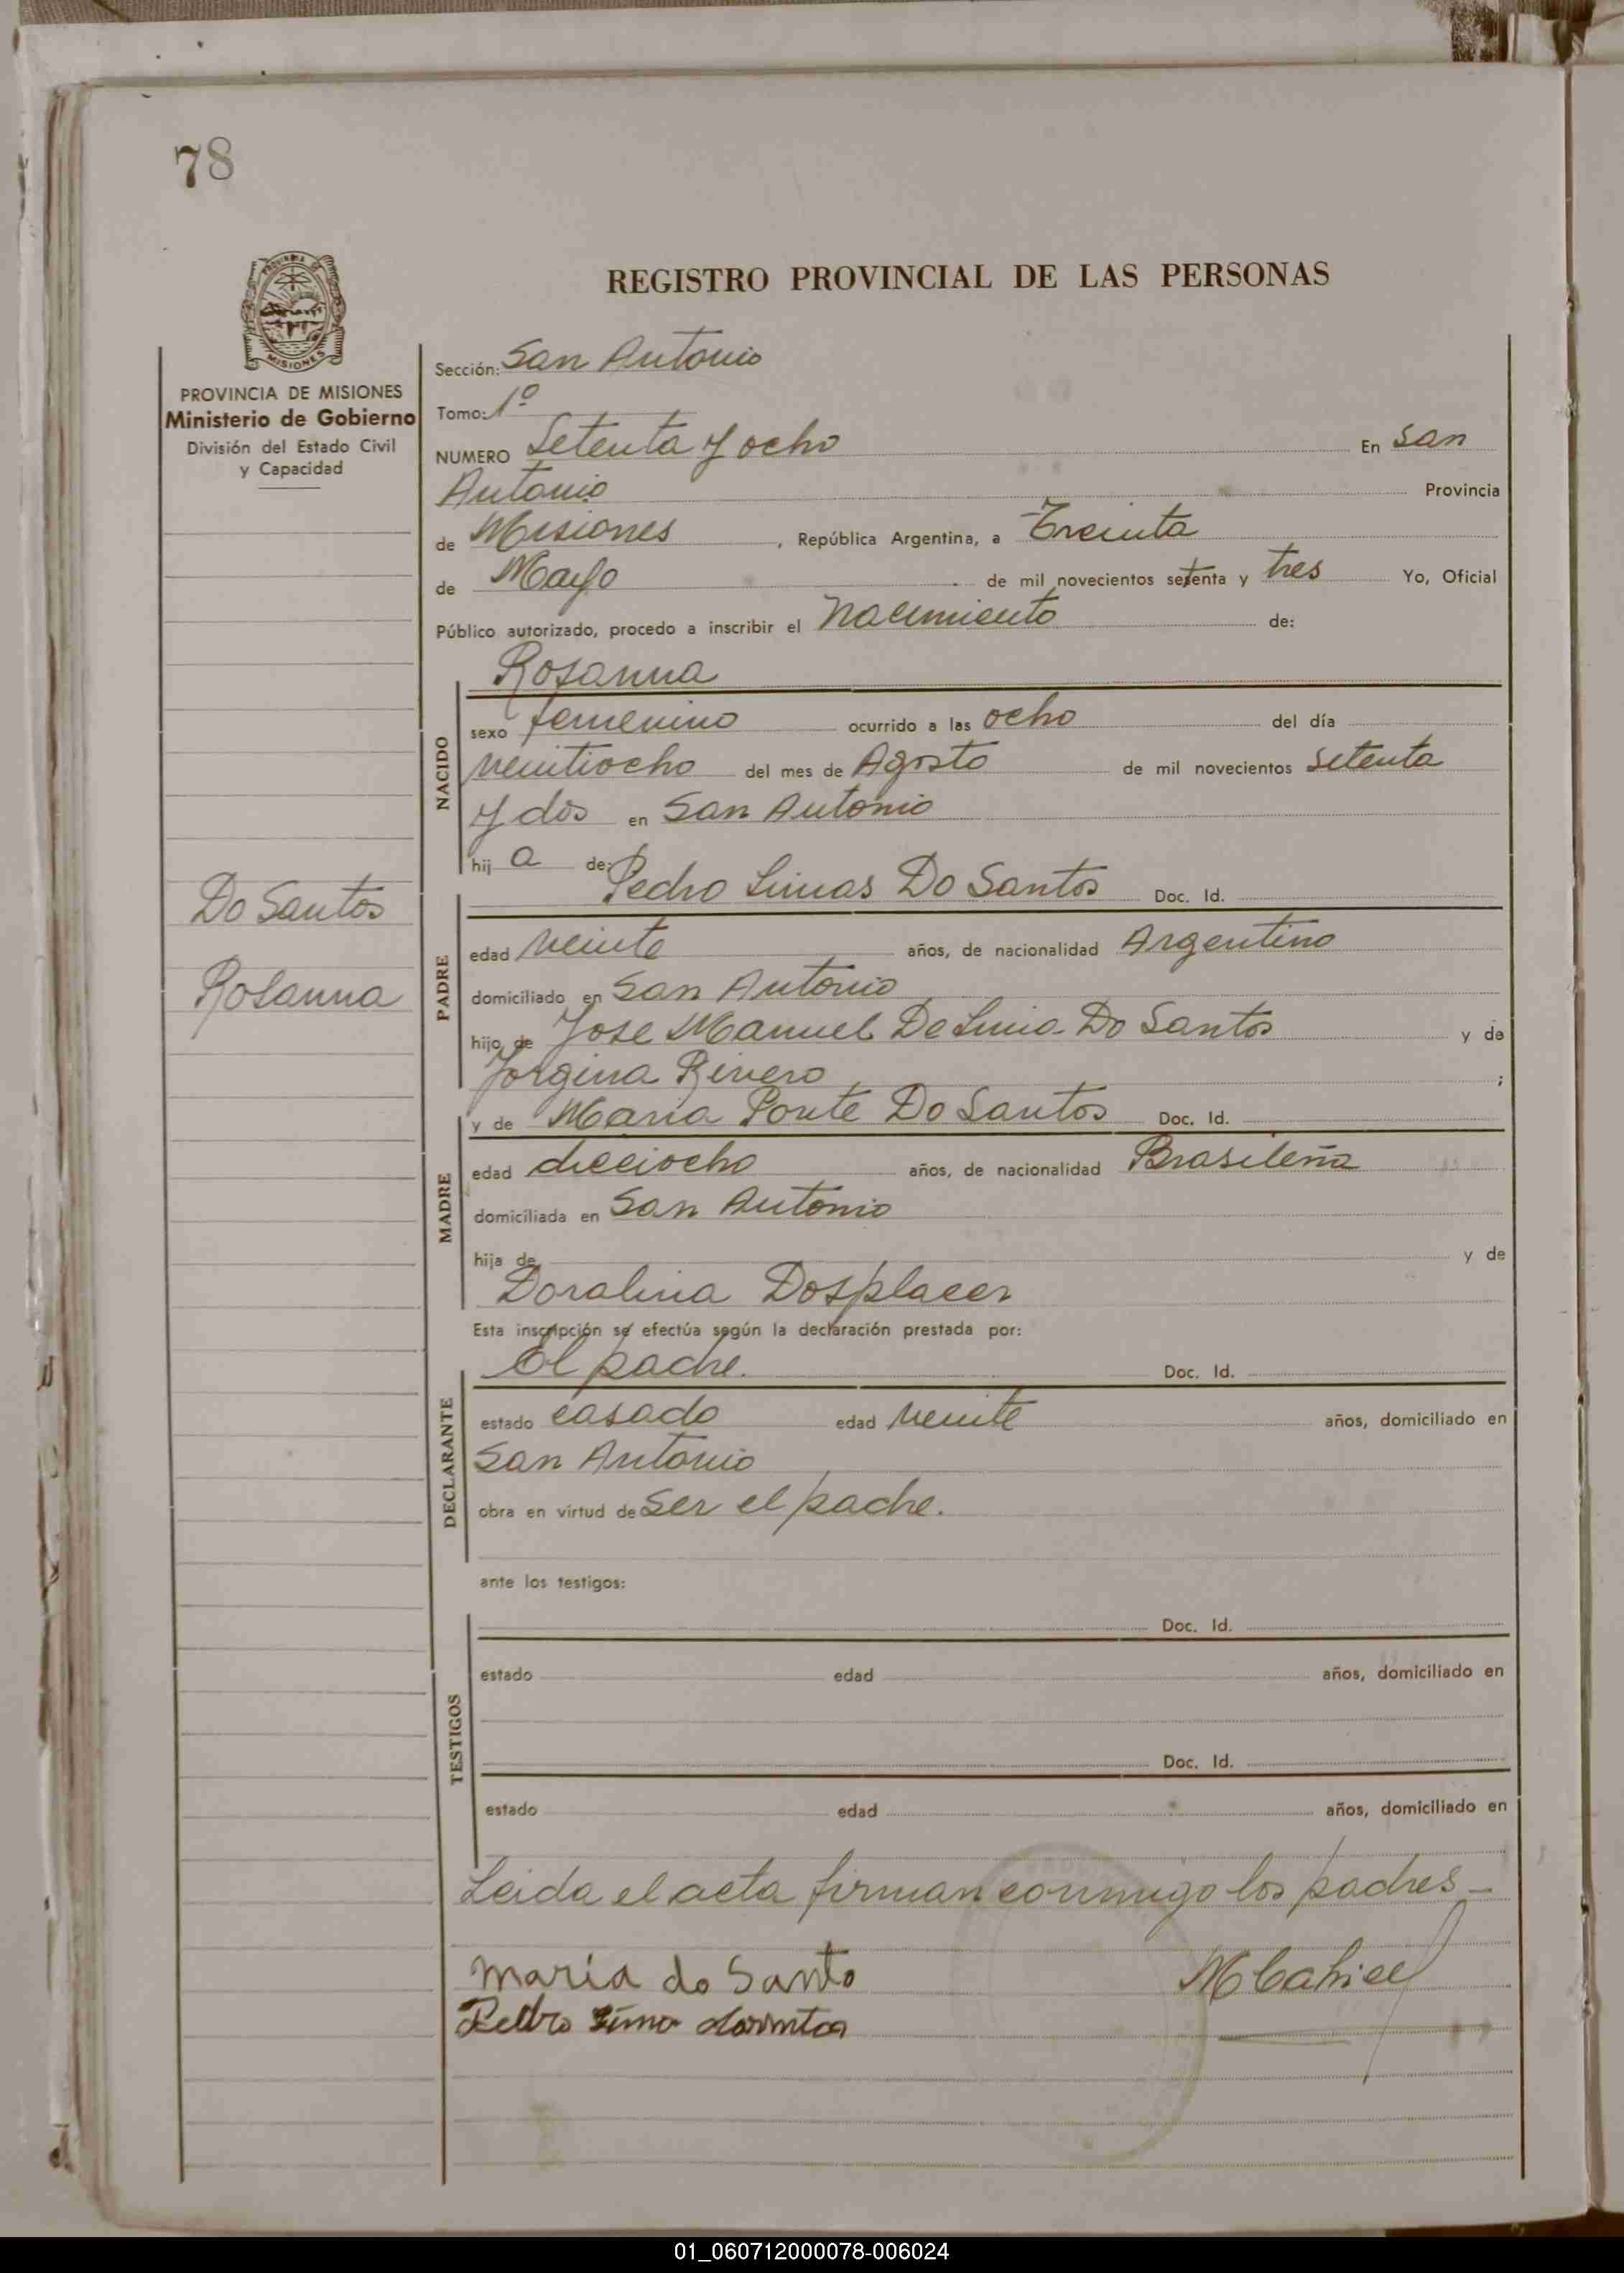 78
REGISTRO PROVINCIAL DE LAS PERSONAS
MISIONES
PROVINCIA DE MISIONES
Ministerio de Gobierno
División del Estado Civil
y Capacidad
Sección: San Antonio
Tomo: 1º
NUMERO Setenta y ocho En San
Antonio Provincia
de Misiones, República Argentina, a Treinta
de Mayo de mil novecientos setenta y tres Yo, Oficial
Público autorizado, procedo a inscribir el Nacimiento de:
Rosanna
NACIDO
sexo femenino ocurrido a las ocho del día
veintiocho del mes de Agosto de mil novecientos setenta
y dos en San Antonio
hij a de:
Pedro Limas Do Santos Doc. Id.
Do Santos
Rosanna
PADRE
edad veinte años, de nacionalidad Argentino
domiciliado en San Antonio
hijo de Jose Manuel De Lima Do Santos y de
Jorgina Rivero ;
y de Maria Ponte Do Santos Doc. Id.
MADRE
edad dieciocho años, de nacionalidad Brasileña
domiciliada en San Antonio
hija de y de
Doralina Dosplacer
Esta inscripción se efectúa según la declaración prestada por:
El padre. Doc. Id.
DECLARANTE
estado casado edad veinte años, domiciliado en
San Antonio
obra en virtud de ser el padre.
ante los testigos:
Doc. Id.
TESTIGOS
estado edad años, domiciliado en
Doc. Id.
estado edad años, domiciliado en
Leida el acta firman conmigo los padres -
maria do Santo
Pedro Lima
01_060712000078-006024